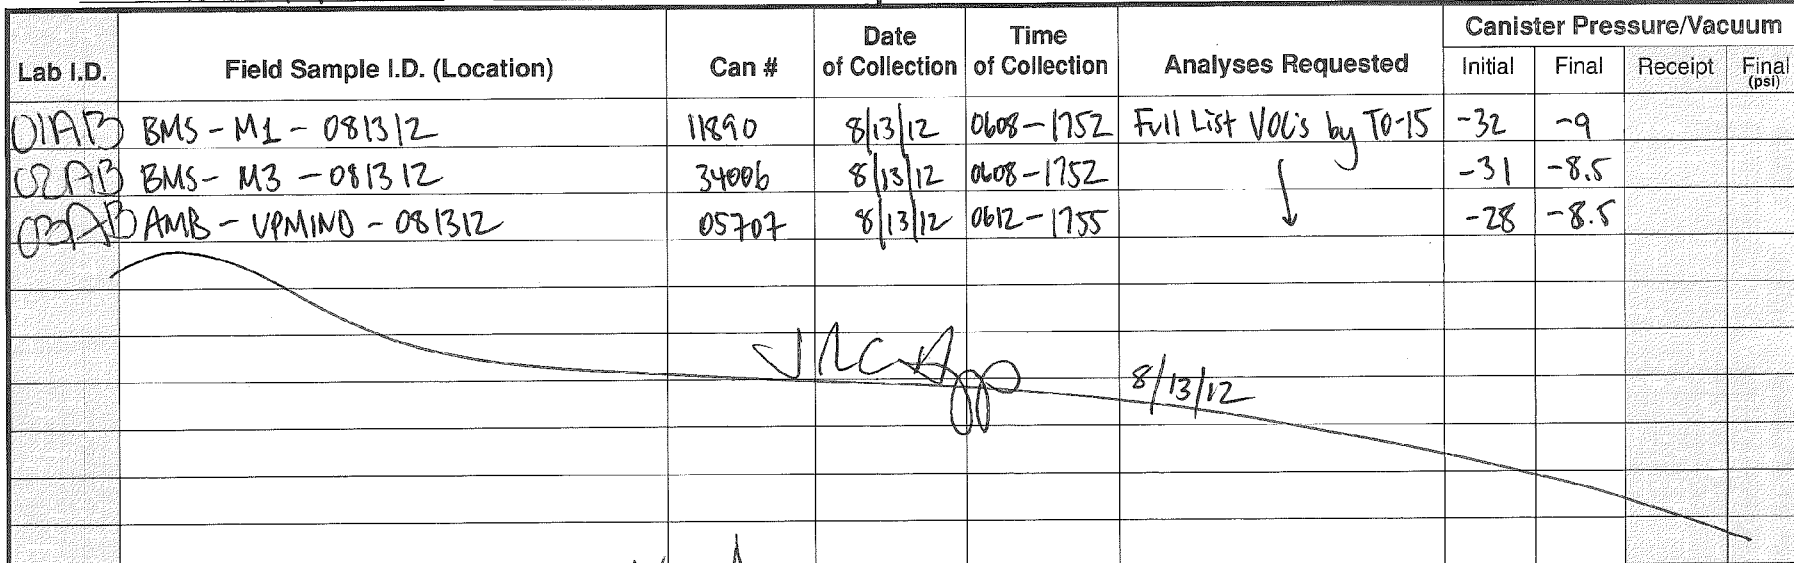 Canister Pressure/Vacuum
Lab I.D. Field Sample I.D. (Location) Can # Date of Collection Time of Collection Analyses Requested Initial Final Receipt Final (psi)
01AB BMS - M1 - 081312 11890 8/13/12 0608-1752 Full List VOC's by TO-15 -32 -9
02AB BMS - M3 - 081312 34006 8/13/12 0608-1752 -31 -8.5
03AB AMB - UPMIND - 081312 05707 8/13/12 0612-1755 -28 -8.5
8/13/12